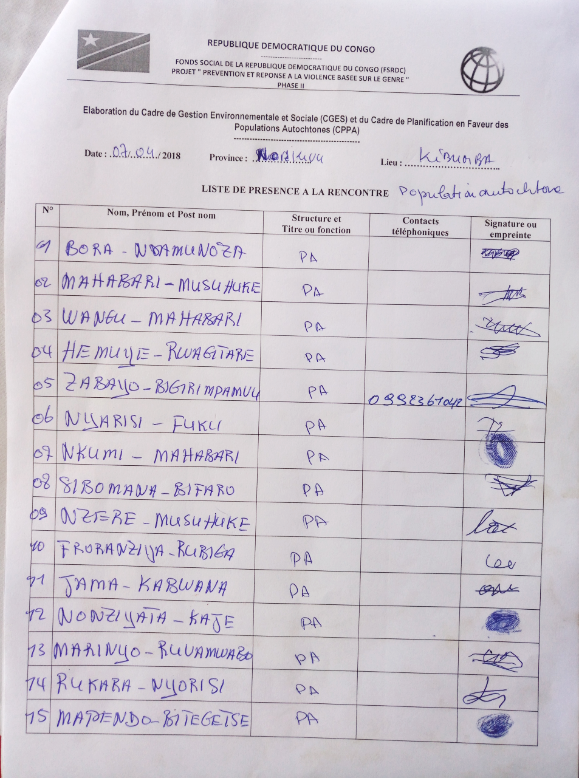 REPUBLIQUE DEMOCRATIQUE DU CONGO
FONDS SOCIAL DE LA REPUBLIQUE DEMOCRATIQUE DU CONGO (FSRDC)
PROJET " PREVENTION ET REPONSE A LA VIOLENCE BASEE SUR LE GENRE "
PHASE II
Elaboration du Cadre de Gestion Environnementale et Sociale (CGES) et du Cadre de Planification en Faveur des
Populations Autochtones (CPPA)
Date : 07/04/2018 Province : Nord Kivu Lieu : KIBUMBA
LISTE DE PRESENCE A LA RENCONTRE Population autochtone
N° Nom, Prénom et Post nom Structure et Titre ou fonction Contacts téléphoniques Signature ou empreinte
01 BORA - NDAMUNOZA PA
02 MAHABARI - MUSUHUKE PA
03 WANGU - MAHABARI PA
04 HEMUYE - RWAGITARE PA
05 ZABAYO - BIGIRIMPAMVU PA
06 NYARISI - FUKU PA
07 NKUMI - MAHABARI PA
08 SIBOMANA - BIFARO PA
09 NZERE - MUSUHUKE PA
10 FRORANZIYA - RUBIGA PA
11 JAMA - KABWANA PA
12 NONZIYATA - KAJE PA
13 MARINYO - RUVAMWABO PA
14 RUKARA - NYORISI PA
15 MAPENDO - BITEGETSE PA